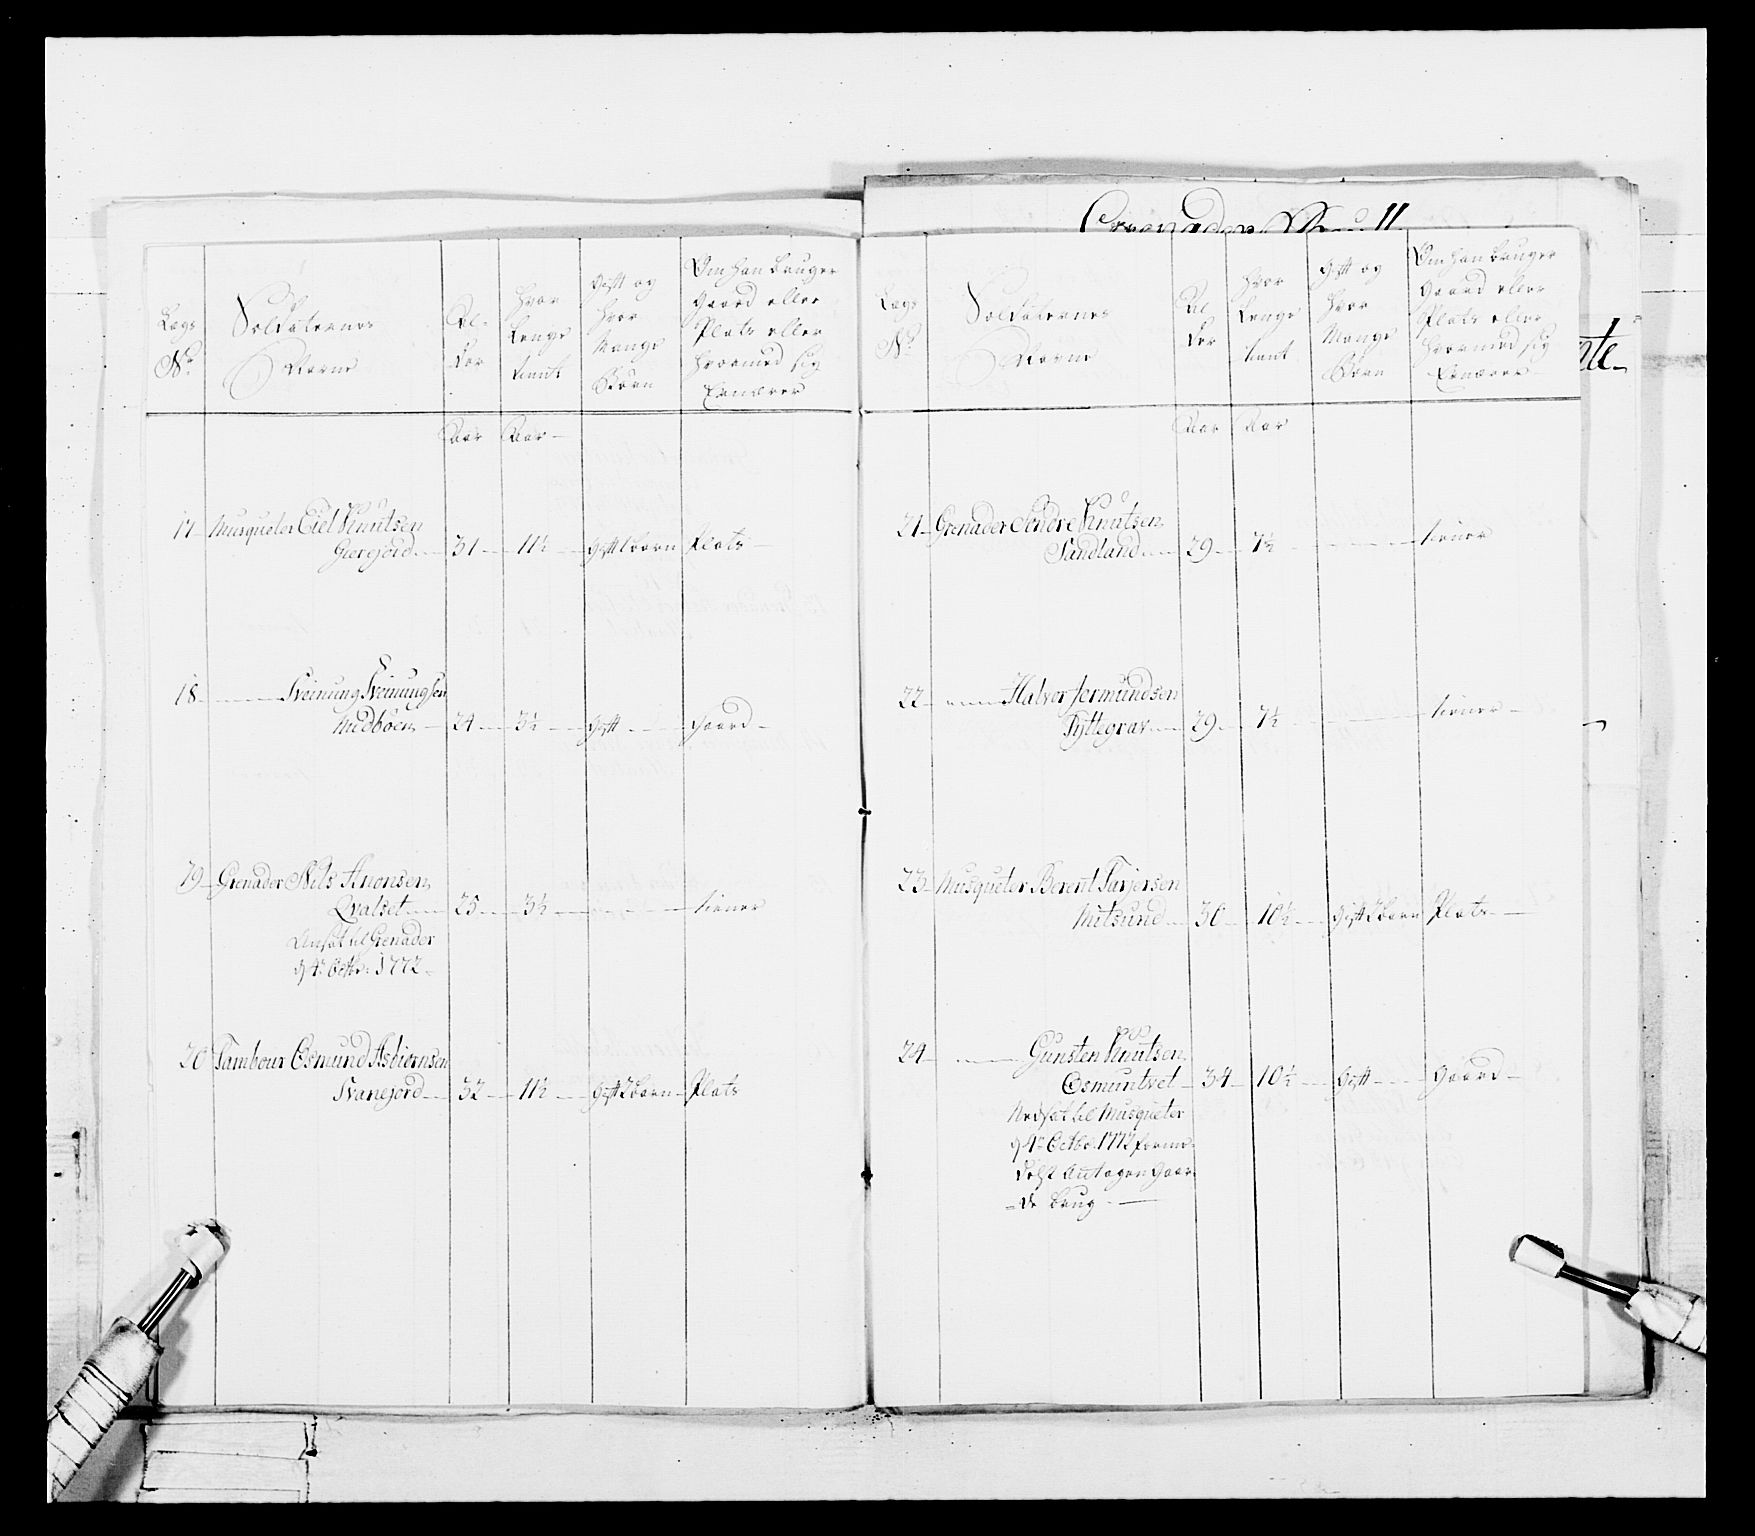 Lægs
No
Soldaternes
Navne
Al-
der
Hvor
Lenge
tient
Gift og
hvor
Mange
Börn
Om han bruger
Gaard eller
Plats eller
hvormed sig
Ernærer
Aar Aar
17 Musqueter Eiel Knutsen
Giergjord 31 11½ Gift 1 barn Plats
18 Sveinung Sveinungsen
Midböen 24 3½ Gift Gaard
19 Grenader Nils Anonsen
Qvalset 25 3½ tiener
Ansat til Grenader
d 4de Octbr: 1772
20 Tambour Osmund Asbiørnsen
Svanejord 32 11½ Gift 2 barn Plats
Lægs
No
Soldaternes
Navne
Al
der
Hvor
Lenge
tient
Gift og
hvor
Mange
Børn
Om han bruger
Gaard eller
Plats eller
hvormed sig
Ernærer
Aar Aar
21 Grenader Sondre Knutsen
Sandland 29 7½ tiener
22 Halvor Jermundsen
Pyttegrav 29 7½ tiener
23 Musqueter Berent Tarjersen
Mitsund 30 10½ Gift 2 barn Plats
24 Gunsten Knutsen
Osmuntvet 34 10½ Gift Gaard
Nedsat til Musqueter
d 4de Octbr. 1772 forme-
delst Antagen Gaar-
de brug